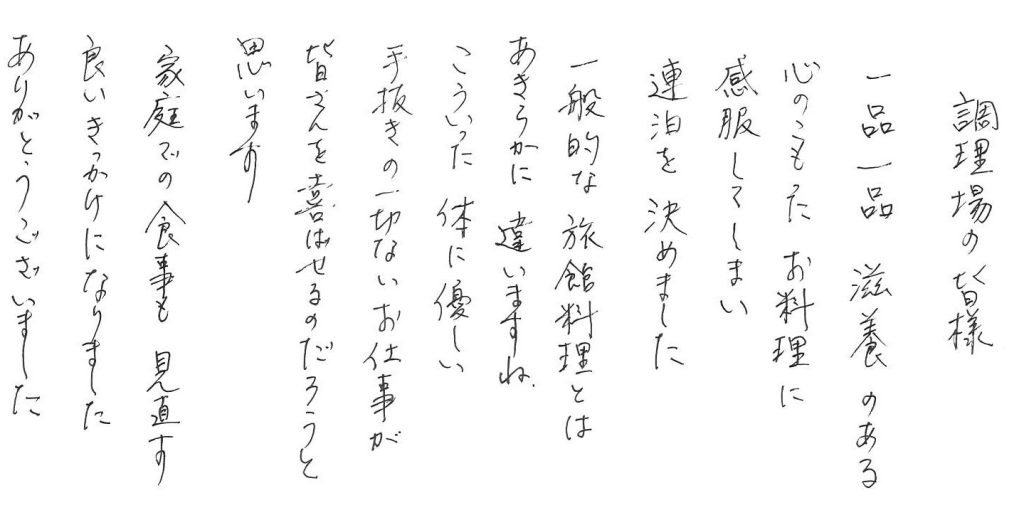 調理場の皆様
一品一品 滋養のある
心のこもった お料理に
感服してしまい
連泊を 決めました
一般的な 旅館料理とは
あきらかに 違いますね、
こういった 体に優しい
手抜きの一切ないお仕事が
皆さんを喜ばせるのだろうと
思います
家庭での食事も 見直す
良いきっかけになりました
ありがとうございました